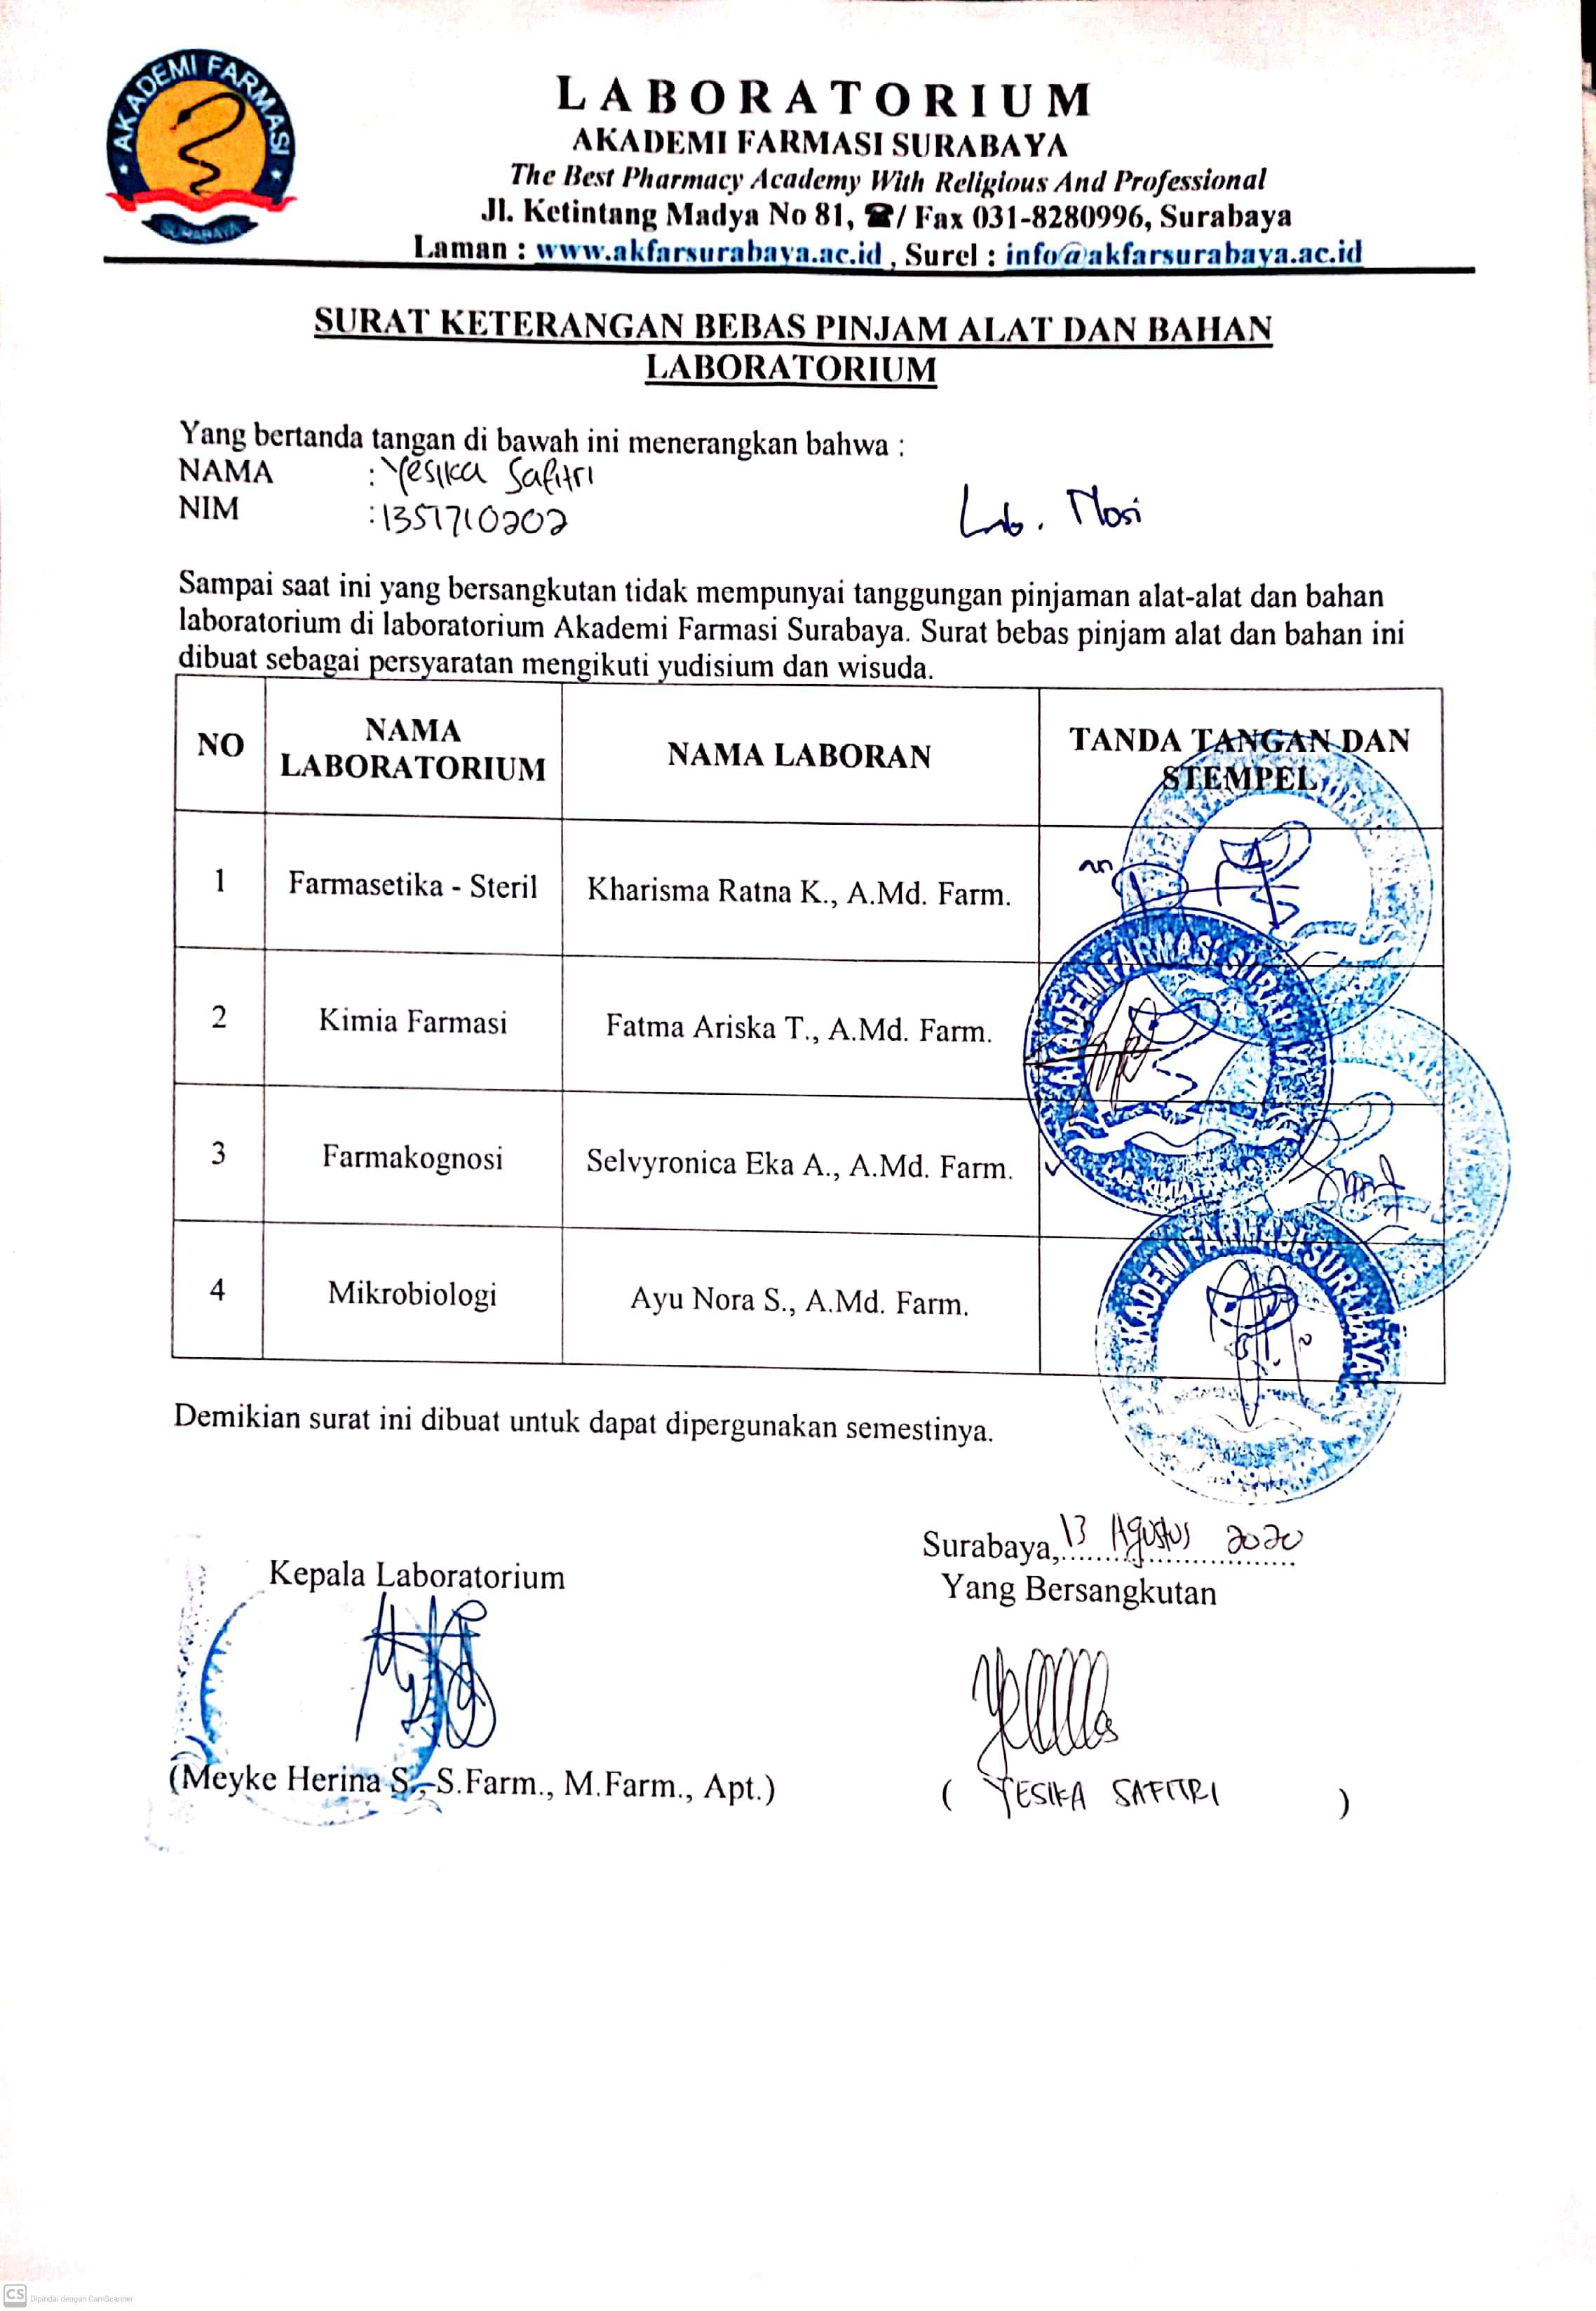 AKADEMI FARMASI
SURABAYA
LABORATORIUM
AKADEMI FARMASI SURABAYA
The Best Pharmacy Academy With Religious And Professional
Jl. Ketintang Madya No 81, ☎/ Fax 031-8280996, Surabaya
Laman : www.akfarsurabaya.ac.id , Surel : info@akfarsurabaya.ac.id
SURAT KETERANGAN BEBAS PINJAM ALAT DAN BAHAN
LABORATORIUM
Yang bertanda tangan di bawah ini menerangkan bahwa :
NAMA : Yesika Safitri
NIM : 1351710202
Lab.
Sampai saat ini yang bersangkutan tidak mempunyai tanggungan pinjaman alat-alat dan bahan
laboratorium di laboratorium Akademi Farmasi Surabaya. Surat bebas pinjam alat dan bahan ini
dibuat sebagai persyaratan mengikuti yudisium dan wisuda.
NO NAMA LABORATORIUM NAMA LABORAN TANDA TANGAN DAN STEMPEL
1 Farmasetika - Steril Kharisma Ratna K., A.Md. Farm.
2 Kimia Farmasi Fatma Ariska T., A.Md. Farm.
AKADEMI FARMASI SURABAYA
3 Farmakognosi Selvyronica Eka A., A.Md. Farm.
4 Mikrobiologi Ayu Nora S., A.Md. Farm.
AKADEMI FARMASI SURABAYA
Demikian surat ini dibuat untuk dapat dipergunakan semestinya.
Surabaya, 13 Agustus 2020
Kepala Laboratorium
Yang Bersangkutan
(Meyke Herina S., S.Farm., M.Farm., Apt.)
( YESIKA SAFITRI )
CS Dipindai dengan CamScanner